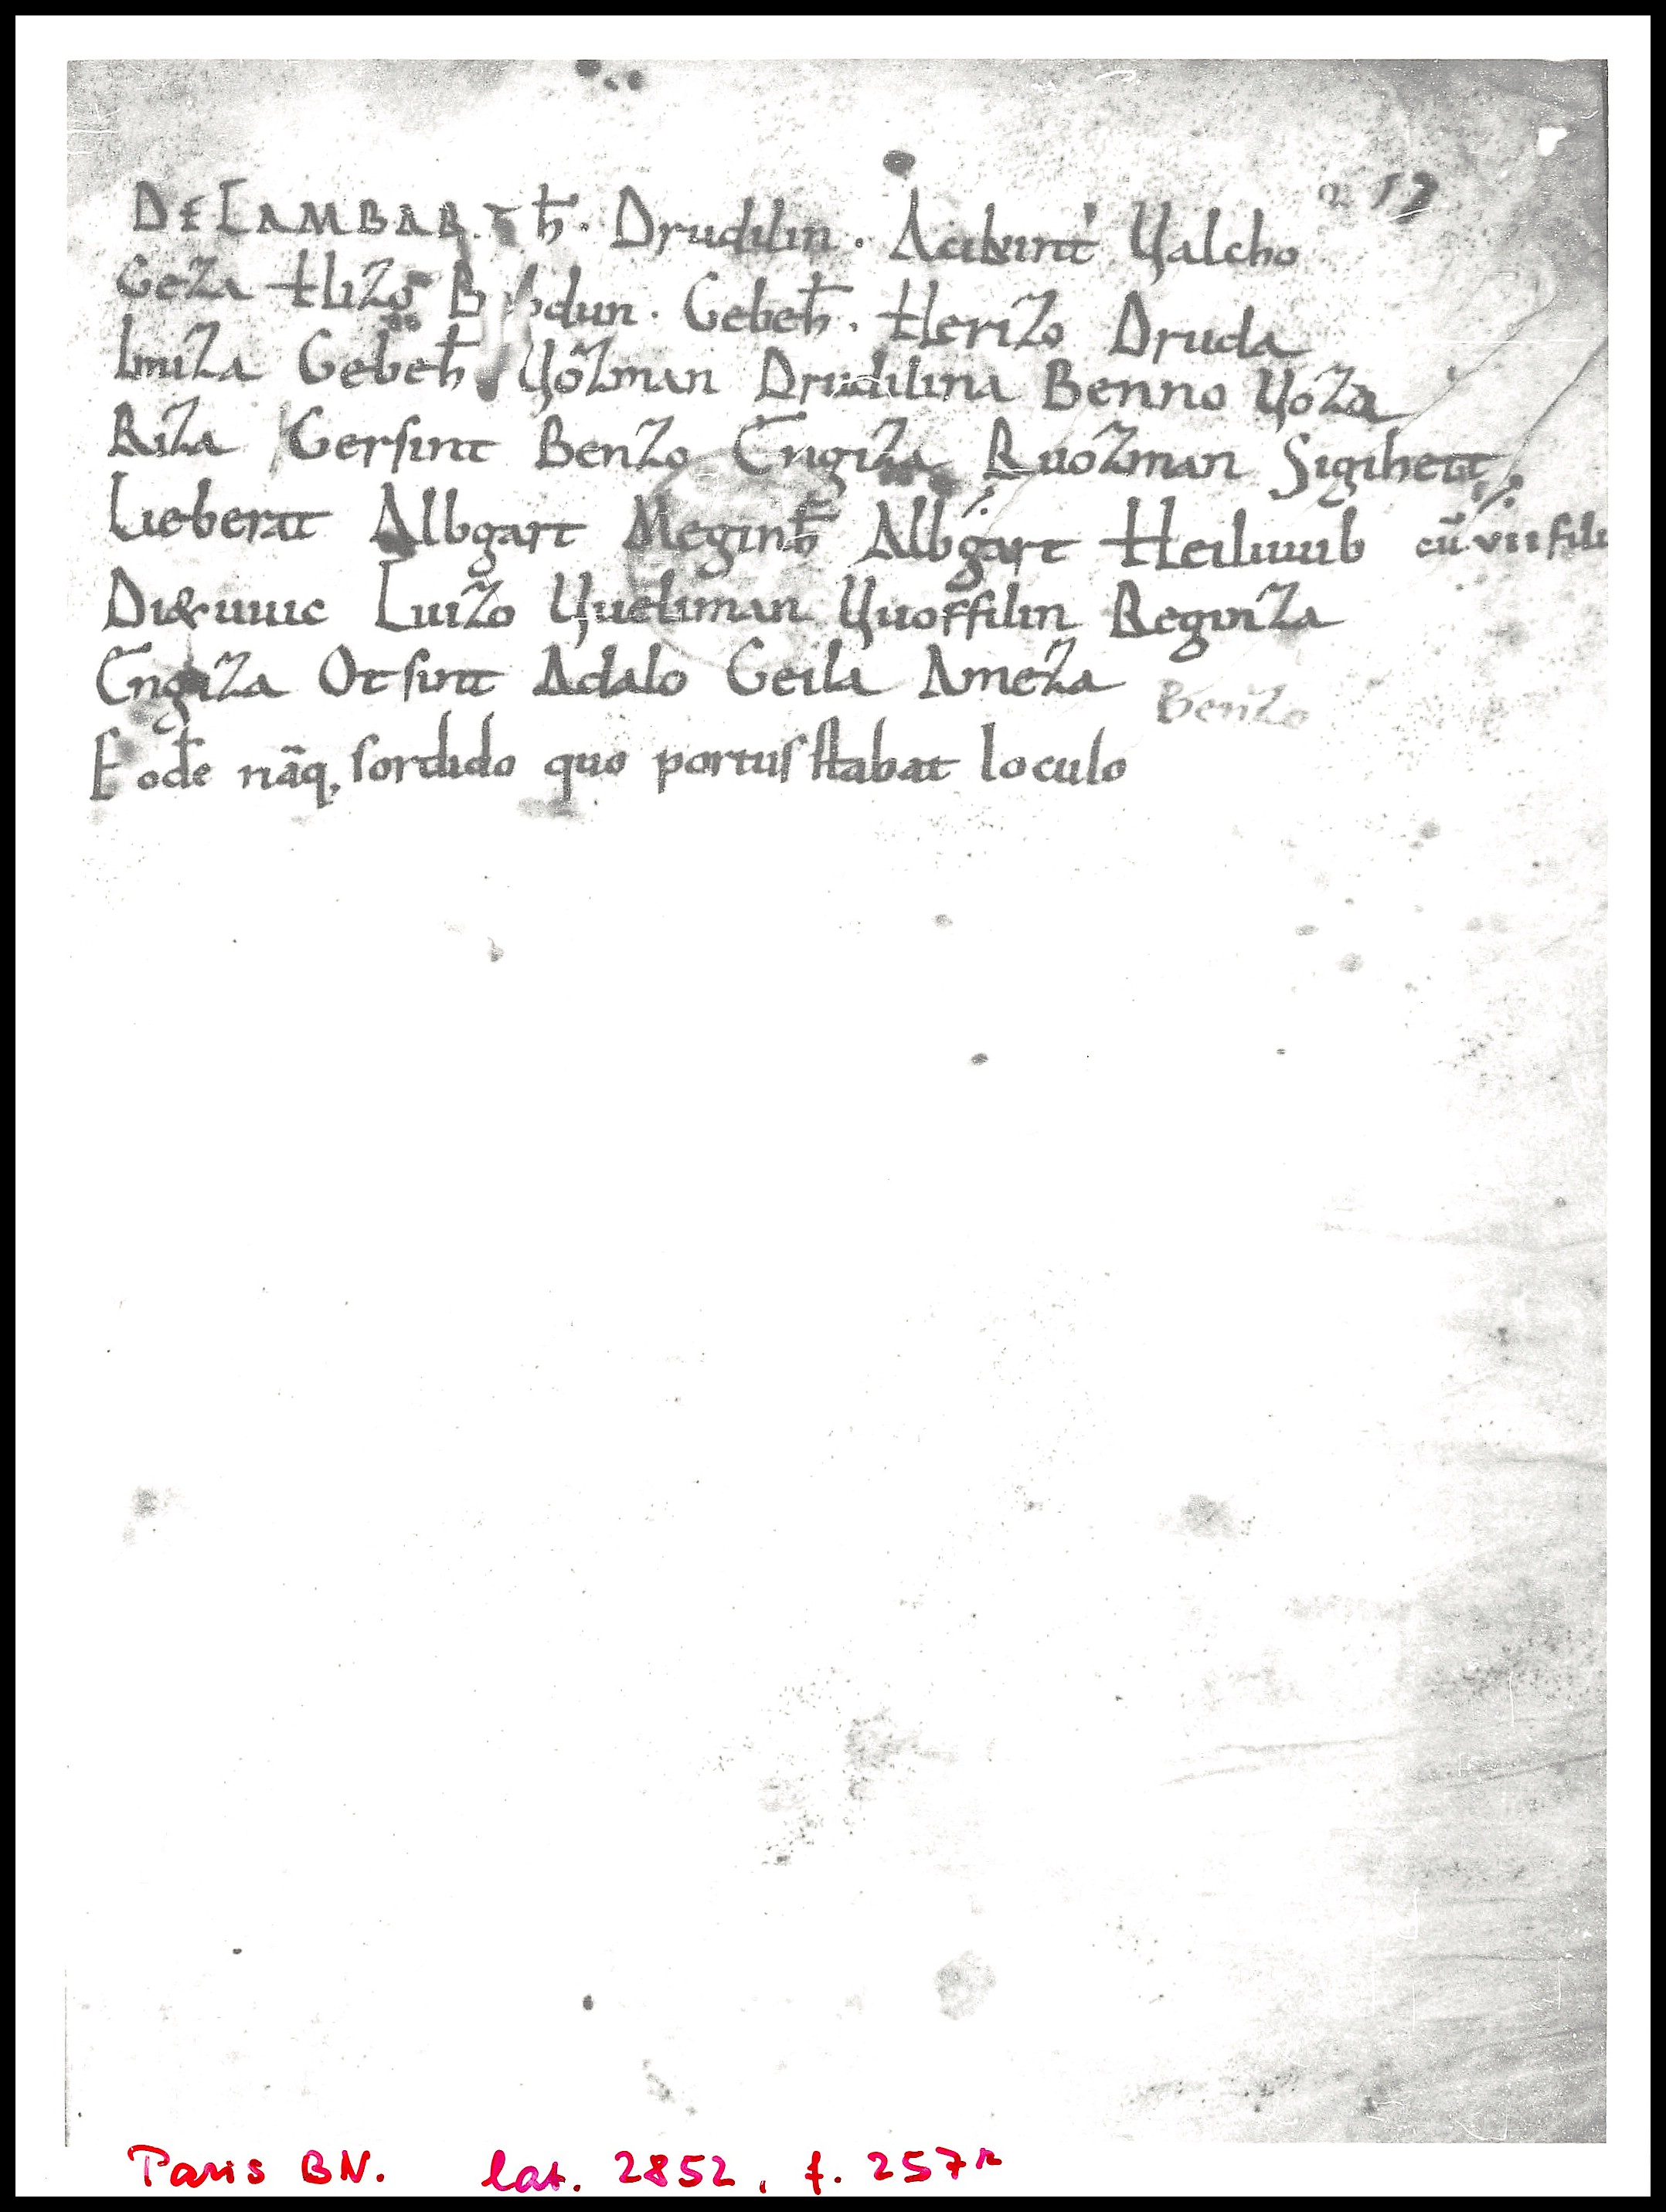 Drudilin. Ualcho
Geza Hizo Gebeħ. Herizo Druda
Imiza Gebeħ Uozman Drudilina Benno Uoza
Riza Gersint Benzo Engiza Ruozman Sigihett
Lieberat Albgart Meginħ Albgart Heiliuuib cū vii fili
Di&uuic Luizo Uueliman Uuoffilin Reginza
Engiza Otsint Adalo Geila Ameza Benzo
Eodē nāq, sordido quo portus stabat loculo
Paris BN. lat. 2852, f. 257r